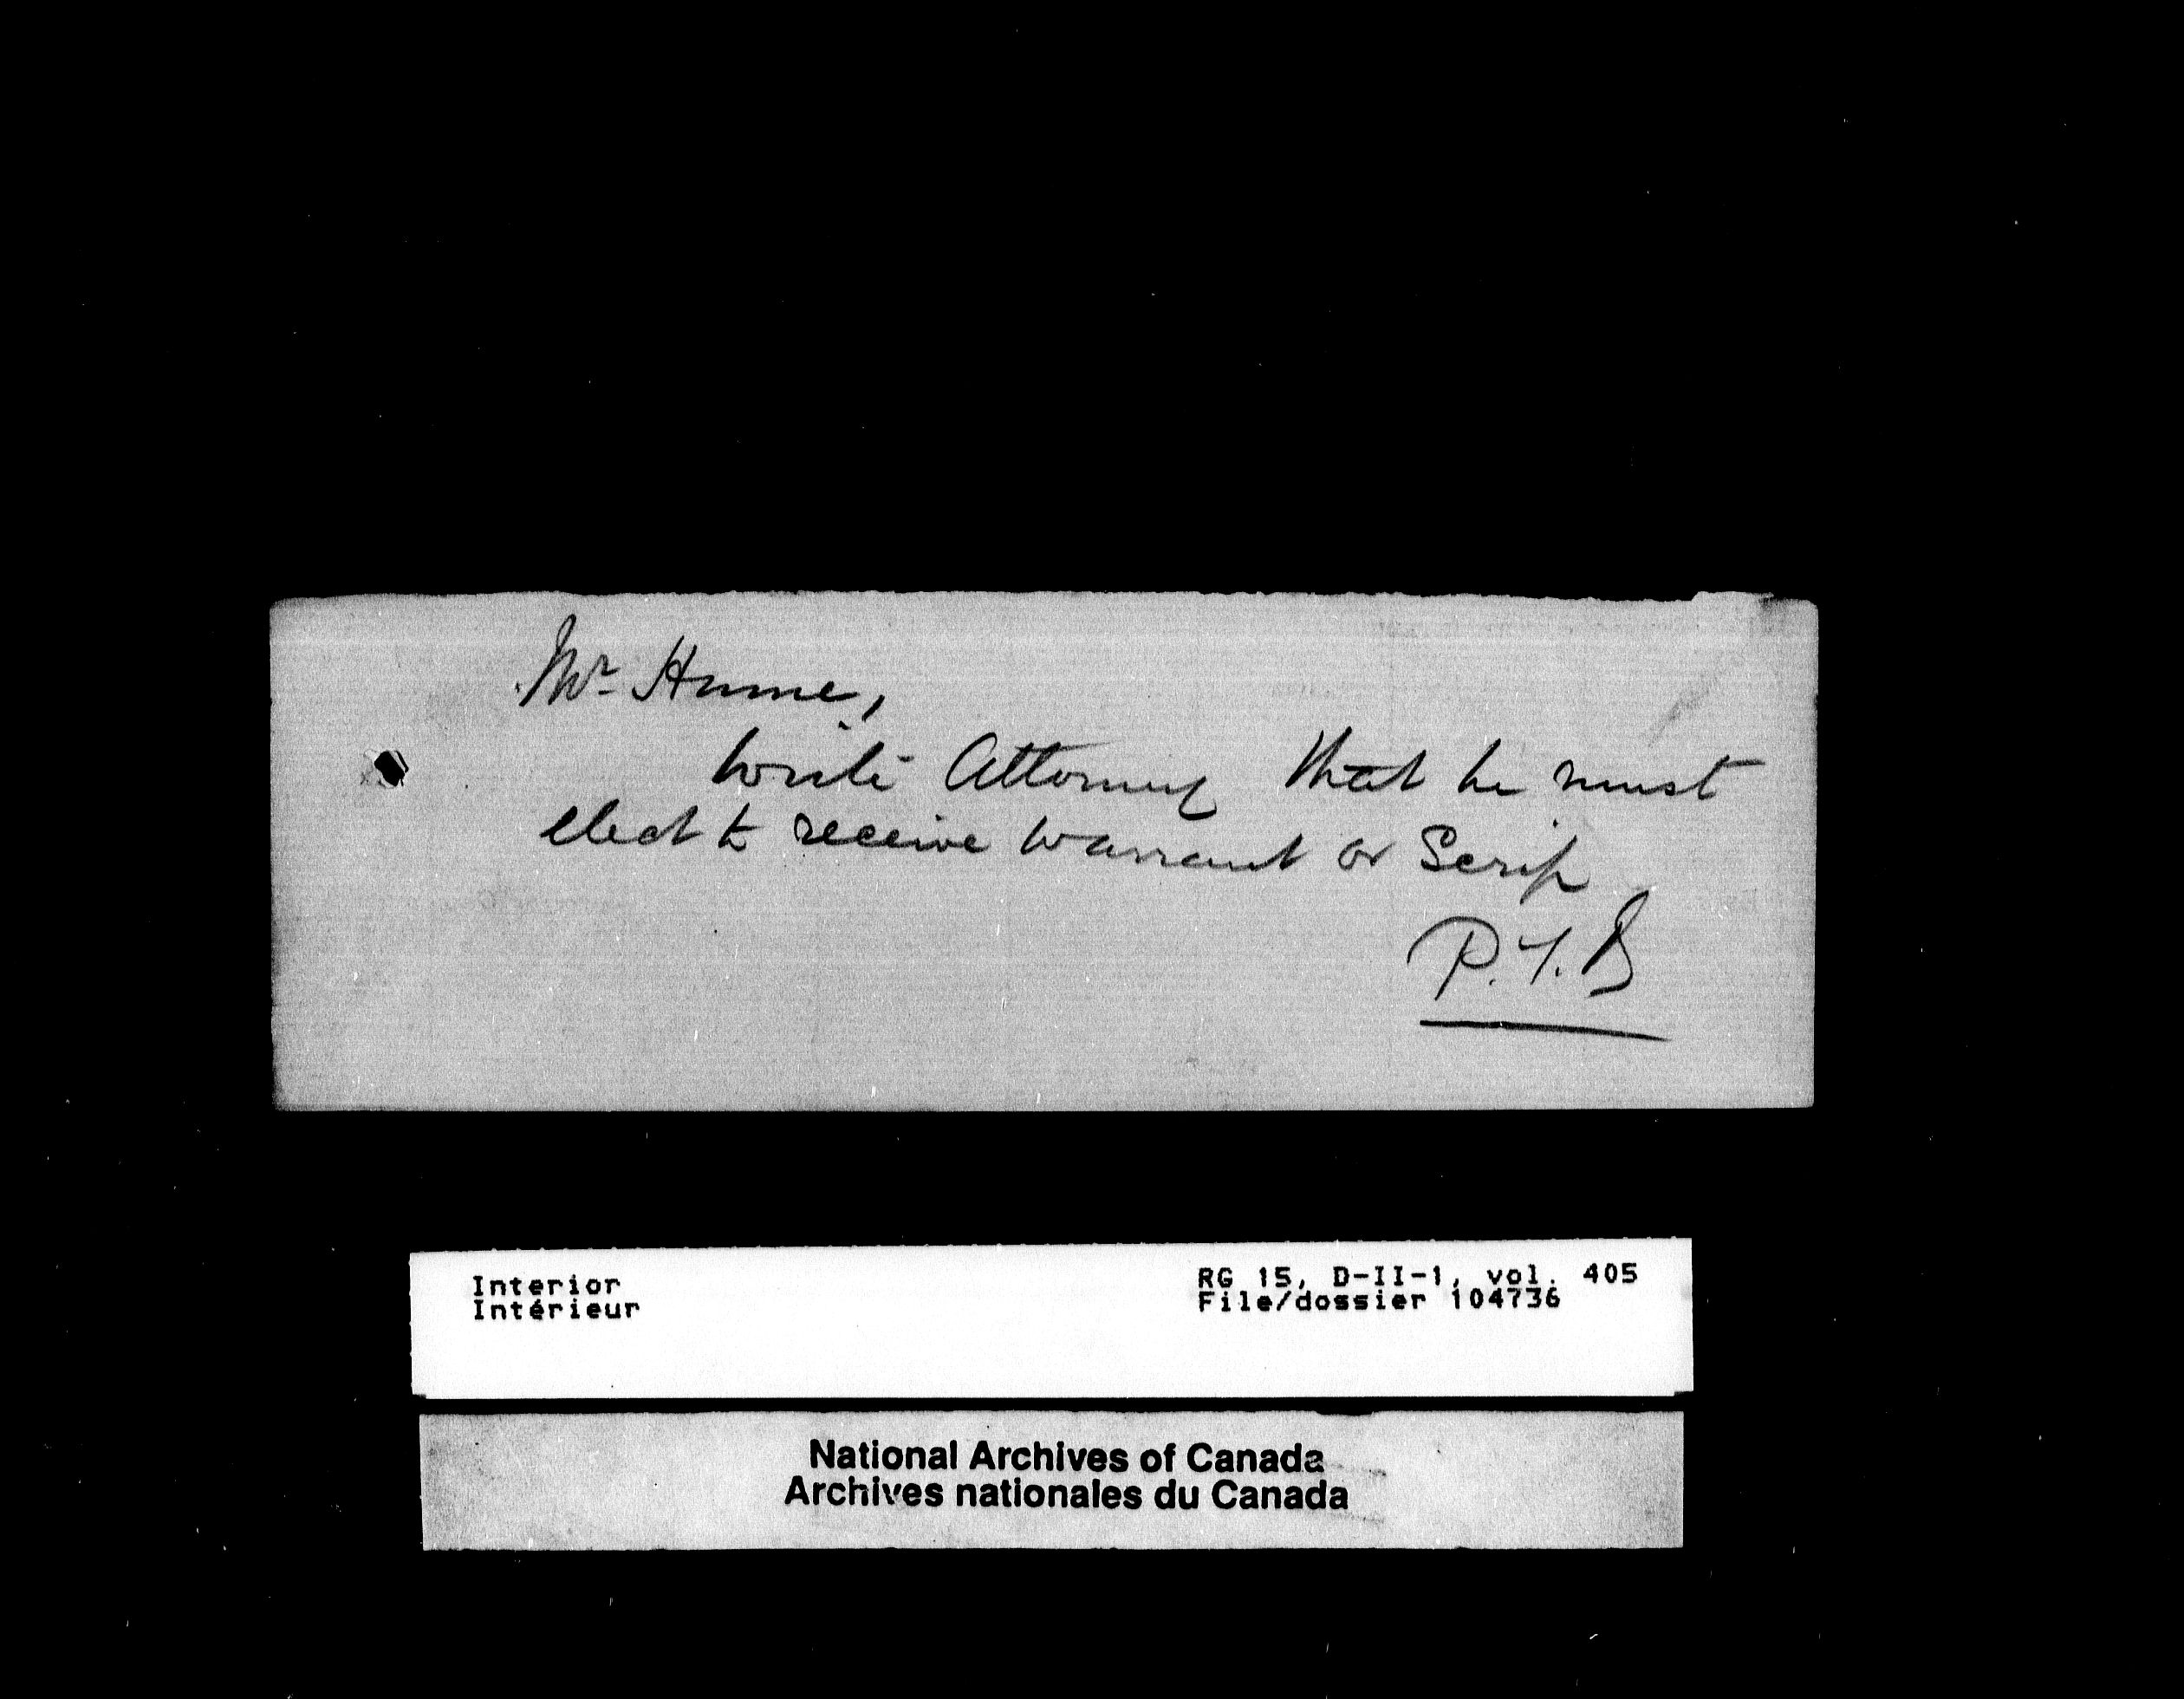 Mr Hume,
Write Attorney that he must
elect to receive Warrant or Scrip
Interior
Intérieur
RG 15, D-II-1, vol. 405
File/dossier 104736
National Archives of Canada
Archives nationales du Canada